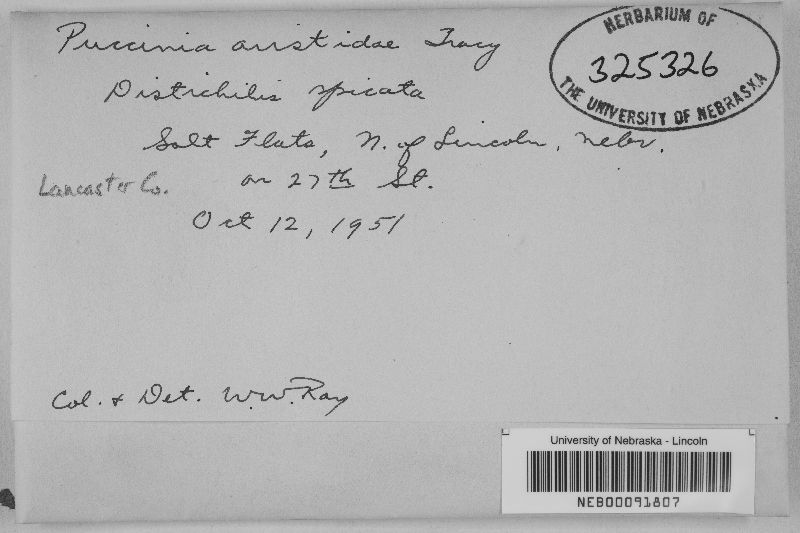 Puccinia aristidae Tracy
HERBARIUM OF
325326
THE UNIVERSITY OF NEBRASKA
Distichilis spicata
Salt Flats, N. of Lincoln, Nebr.
Lancaster Co.
on 27th St.
Oct 12, 1951
Col. & Det. W.W. Ray
University of Nebraska - Lincoln
NEB00091807